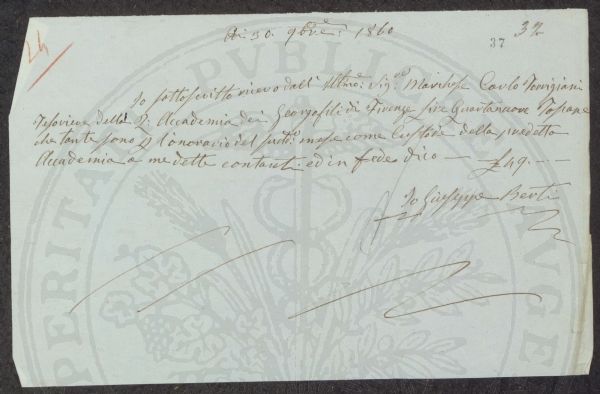 24
Di 30. 9bre: 1860
37 32
Io sottoscritto ricevo dall' Illmo: Sigre Marchese Carlo Torrigiani
Tesoriere della R: Accademia dei Georgofili di Firenze Lire Quarantanove Toscane
che tante sono p l'onorario del sudto: mese come Custode della sudetta
Accademia a me dette contanti. ed in fede dico — £49. — —
Io Giuseppe Berti
PUBLI
PERITA